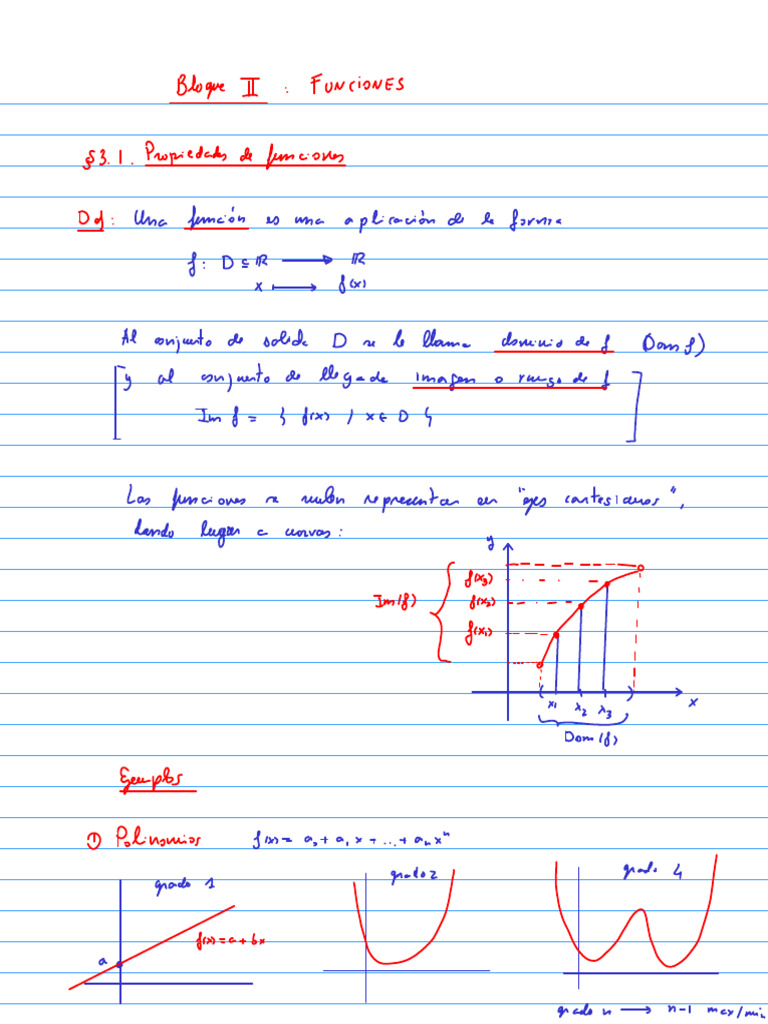 Bloque II : FUNCIONES
§3.1. Propiedades de funciones
Df: Una función es una aplicación de la forma
f: D ⊆ ℝ ⟶ ℝ
x ⟼ f(x)
Al conjunto de salida D se le llama dominio de f (Dom f)
y al conjunto de llegada imagen o rango de f
Im f = { f(x) / x ∈ D }
Las funciones se suelen representar en "ejes cartesianos",
dando lugar a curvas:
y
f(x3)
Im(f)
f(x2)
f(x1)
x1 x2 x3
x
Dom(f)
Ejemplos
① Polinomios f(x) = a0 + a1 x + ... + an x^n
grado 1
grado 2
grado 4
f(x) = a + bx
a
grado n ⟶ n-1 max/min